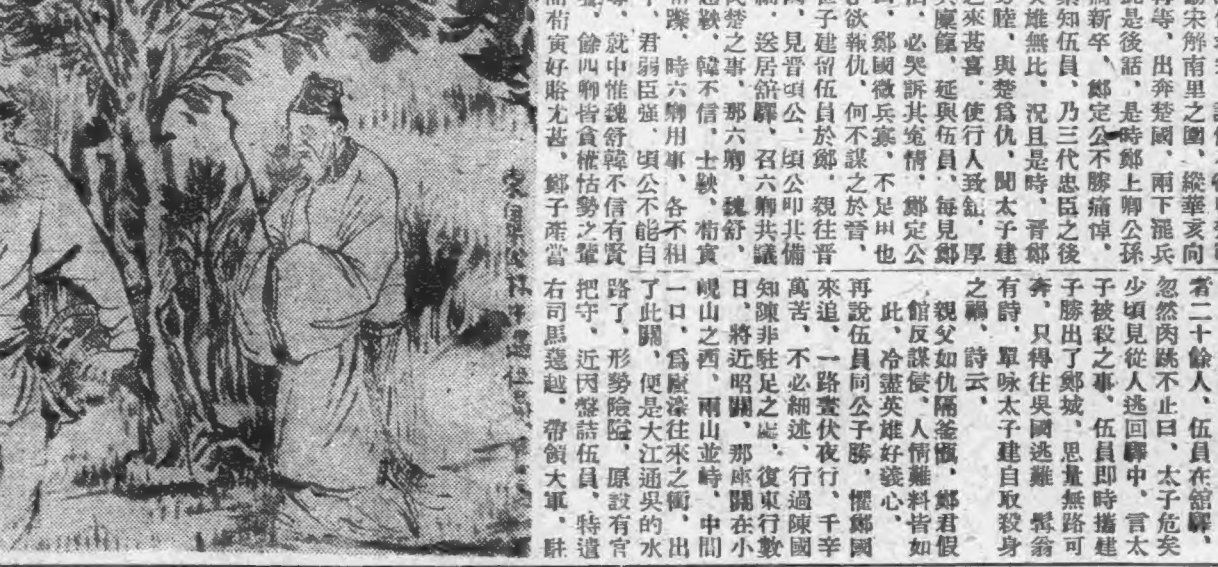 勝宋解南里之圍、縱華亥向
寧等、出奔楚國、兩下罷兵
此是後話、是時鄭上卿公孫
僑新卒、鄭定公不勝痛悼、
素知伍員、乃三代忠臣之後
英雄無比、況且是時、晋鄭
方睦、與楚爲仇、聞太子建
之來甚喜、使行人致舘、厚
其廩餼、延與伍員、每見鄭
伯、必哭訴其寃情、鄭定公
曰、鄭國微兵寡、不足用也
子欲報仇、何不謀之於晉、
世子建留伍員於鄭、親往晋
國、見晋頃公、頃公叩其備
細、送居舘驛、召六卿共議
伐楚之事、那六卿、魏舒、
趙鞅、韓不信、士鞅、荀寅
荀躒、時六卿用事、各不相
下、君弱臣强、頃公不能自
專、就中惟魏舒韓不信有賢
聲、餘四卿皆貪權怙勢之輩
而荀寅好賂尤甚、鄭子產當
者二十餘人、伍員在舘驛、
忽然肉跳不止曰、太子危矣
少頃見從人逃回驛中、言太
子被殺之事、伍員即時攜建
子勝出了鄭城、思量無路可
奔、只得往吳國逃難、髯翁
有詩、單咏太子建自取殺身
之禍、詩云、
親父如仇隔釜鬵、鄭君假
館反謀侵、人情難料皆如
此、冷盡英雄好義心、
再說伍員同公子勝、懼鄭國
來追、一路晝伏夜行、千辛
萬苦、不必細述、行過陳國
知陳非駐足之處、復東行數
日、將近昭關、那座關在小
峴山之西、兩山並峙、中間
一口、爲廬濠往來之衝、出
了此關、便是大江通吳的水
路了、形勢險隘、原設有官
把守、近因盤詰伍員、特遣
右司馬薳越、帶領大軍、駐
東皋公